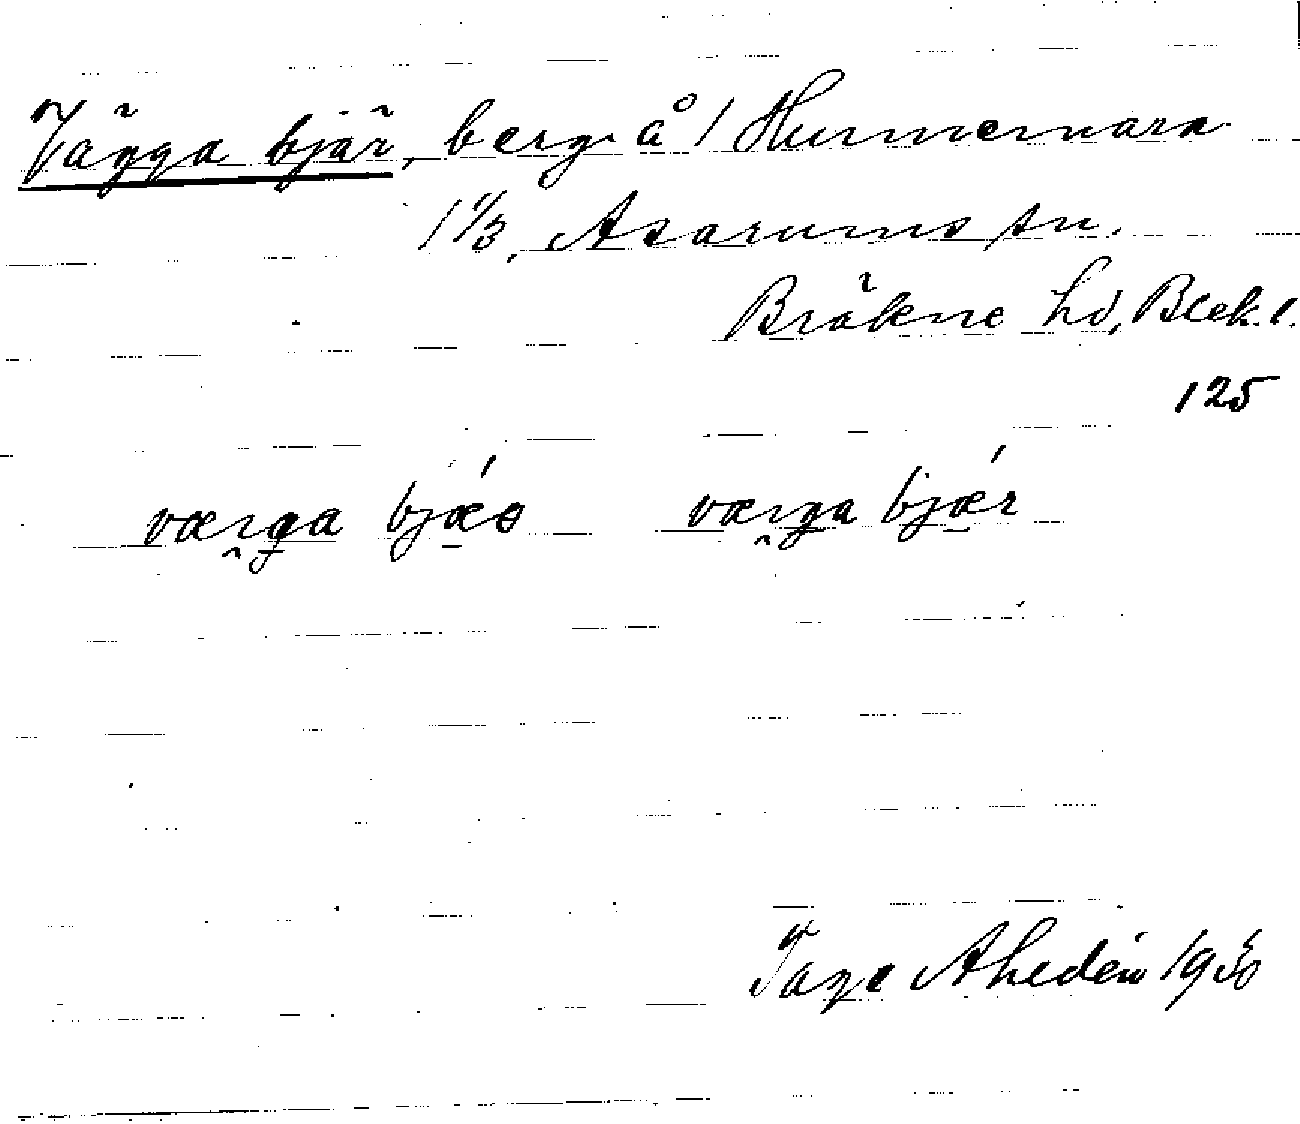 Vägga bjär, berg å 1 Hunnemara
1 1/3, Asarums sn.
Bräkne hd, Blek. l.
125
værga bjǽr værga bjǽr
Tage Ahedén 1930